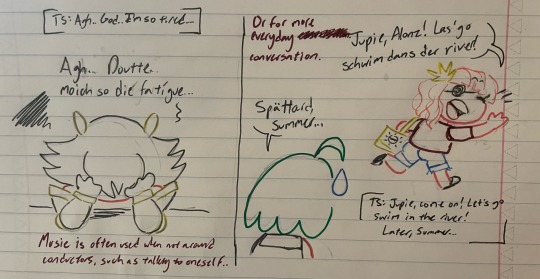 TS: Agh.. God.. I'm so tired...
Agh... Doutte..
moich so die fatigue...
Musie is often used when not around
conductors, such as talking to oneself..
Or for more
everyday
conversation.
Jupie, Alonz! Las'go
schwim dans der river!
Spättard,
Summer...
TS: Jupie, come on! Let's go
swim in the river!
Later, Summer...